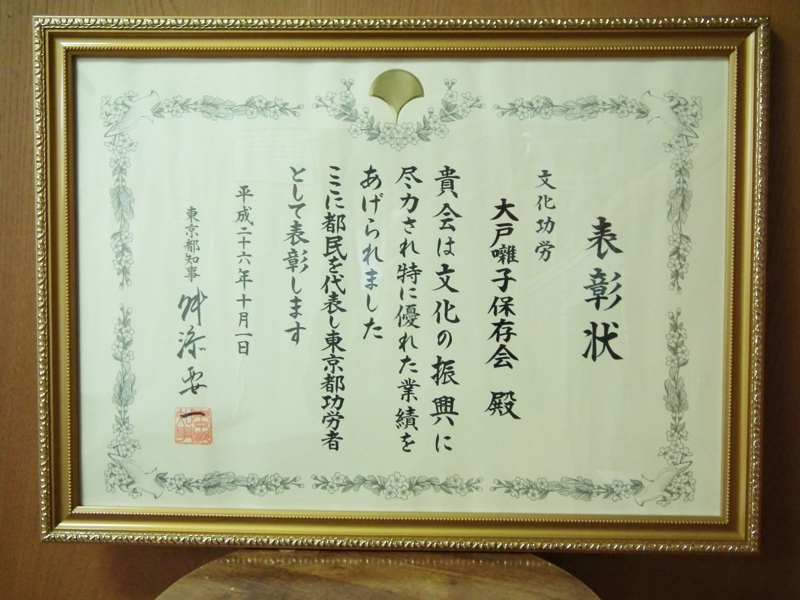 表彰状
文化功労
大戸囃子保存会 殿
貴会は文化の振興に
尽力され特に優れた業績を
あげられました
ここに都民を代表し東京都功労者
として表彰します
平成二十六年十月一日
東京都知事 舛添要一